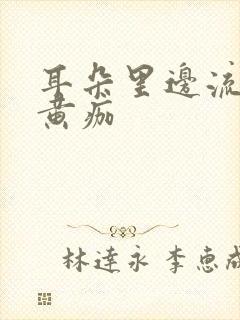 耳朵里邊流
黄痂
林達永 李惠成